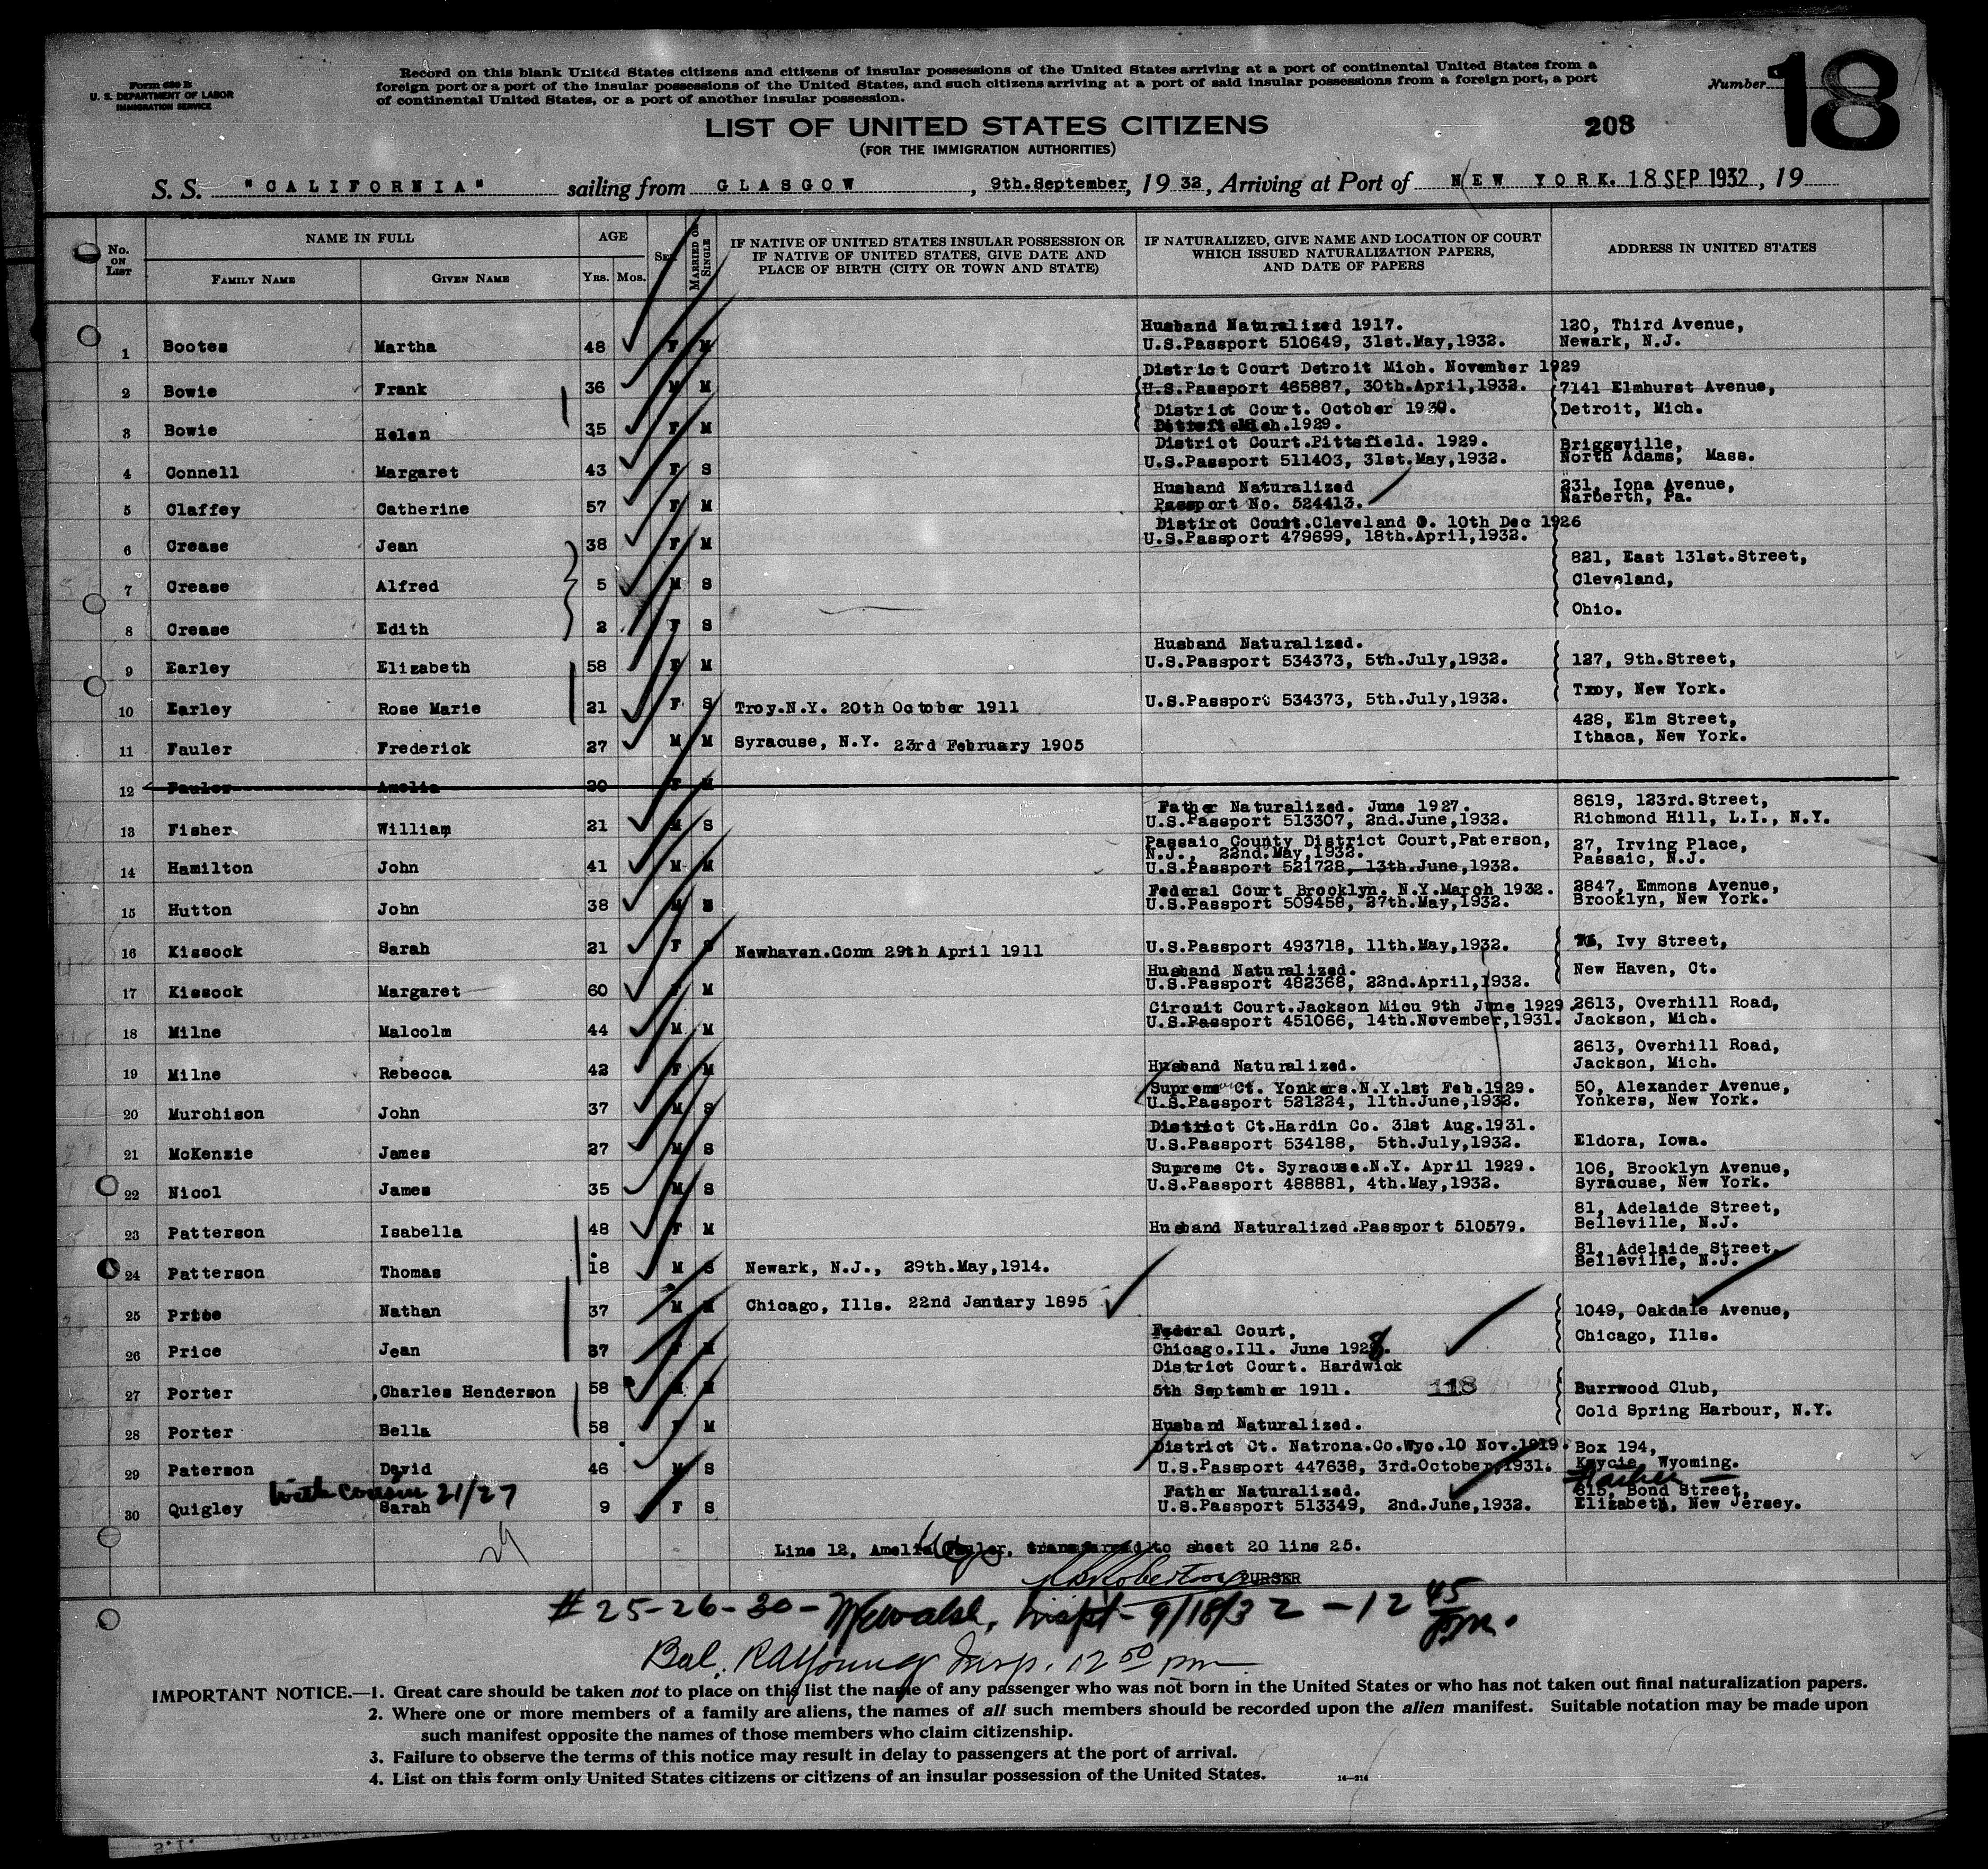 Form 630 B
U. S. DEPARTMENT OF LABOR
IMMIGRATION SERVICE
Record on this blank United States citizens and citizens of insular possessions of the United States arriving at a port of continental United States from a
foreign port or a port of the insular possessions of the United States, and such citizens arriving at a port of said insular possessions from a foreign port, a port
of continental United States, or a port of another insular possession.
Number 18
LIST OF UNITED STATES CITIZENS
208
(FOR THE IMMIGRATION AUTHORITIES)
S. S. "CALIFORNIA" sailing from GLASGOW, 9th.September, 1932, Arriving at Port of NEW YORK. 18 SEP 1932, 19
No. ON LIST
NAME IN FULL
FAMILY NAME
GIVEN NAME
AGE
YRS. MOS.
SEX
MARRIED OR SINGLE
IF NATIVE OF UNITED STATES INSULAR POSSESSION OR
IF NATIVE OF UNITED STATES, GIVE DATE AND
PLACE OF BIRTH (CITY OR TOWN AND STATE)
IF NATURALIZED, GIVE NAME AND LOCATION OF COURT
WHICH ISSUED NATURALIZATION PAPERS,
AND DATE OF PAPERS
ADDRESS IN UNITED STATES
Husband Naturalized 1917. 120, Third Avenue,
1 Bootes Martha 48 F M U.S.Passport 510649, 31st.May,1932. Newark, N.J.
District Court Detroit Mich. November 1929
2 Bowie Frank 36 M M U.S.Passport 465887, 30th.April,1932. 7141 Elmhurst Avenue,
District Court. October 1930. Detroit, Mich.
3 Bowie Helen 35 F M 1929.
District Court.Pittsfield. 1929. Briggsville,
4 Connell Margaret 43 F S U.S.Passport 511403, 31st.May,1932. North Adams, Mass.
Husband Naturalized 231, Iona Avenue,
5 Claffey Catherine 57 F M Passport No. 524413. Narberth, Pa.
Distirct Court.Cleveland O. 10th Dec 1926
6 Crease Jean 38 F M U.S.Passport 479699, 18th.April,1932.
821, East 131st.Street,
7 Crease Alfred 5 M S Cleveland,
Ohio.
8 Crease Edith 2 F S
Husband Naturalized.
9 Earley Elizabeth 58 F M U.S.Passport 534373, 5th.July,1932. 127, 9th.Street,
Troy, New York.
10 Earley Rose Marie 21 F S Troy.N.Y. 20th October 1911 U.S.Passport 534373, 5th.July,1932.
428, Elm Street,
11 Fauler Frederick 27 M M Syracuse, N.Y. 23rd February 1905 Ithaca, New York.
12 Fauler Amelia 20 F M
Father Naturalized. June 1927. 8619, 123rd.Street,
13 Fisher William 21 M S U.S.Passport 513307, 2nd.June,1932. Richmond Hill, L.I., N.Y.
Passaic County District Court,Paterson, 27, Irving Place,
N.J., 22nd.May,1932. Passaic, N.J.
14 Hamilton John 41 M M U.S.Passport 521728, 13th.June,1932.
Federal Court Brooklyn. N.Y.March 1932. 2847, Emmons Avenue,
15 Hutton John 38 M S U.S.Passport 509458, 27th.May,1932. Brooklyn, New York.
16 Kissock Sarah 21 F S Newhaven.Conn 29th April 1911 U.S.Passport 493718, 11th.May,1932. Ivy Street,
Husband Naturalized. New Haven, Ct.
17 Kissock Margaret 60 F M U.S.Passport 482368, 22nd.April,1932.
Circuit Court.Jackson Micu 9th June 1929. 2613, Overhill Road,
18 Milne Malcolm 44 M M U.S.Passport 451066, 14th.November,1931. Jackson, Mich.
2613, Overhill Road,
19 Milne Rebecca 42 F M Husband Naturalized. Jackson, Mich.
Supreme Ct. Yonkers.N.Y.1st Feb.1929. 50, Alexander Avenue,
20 Murchison John 37 M S U.S.Passport 521224, 11th.June,1932. Yonkers, New York.
District Ct.Hardin Co. 31st Aug.1931.
21 McKenzie James 27 M S U.S.Passport 534188, 5th.July,1932. Eldora, Iowa.
Supreme Ct. Syracuse.N.Y. April 1929. 106, Brooklyn Avenue,
22 Nicol James 35 M S U.S.Passport 488881, 4th.May,1932. Syracuse, New York.
81, Adelaide Street,
23 Patterson Isabella 48 F M Husband Naturalized.Passport 510579. Belleville, N.J.
81, Adelaide Street,
24 Patterson Thomas 18 M S Newark, N.J., 29th.May,1914. Belleville, N.J.
25 Price Nathan 37 M M Chicago, Ills. 22nd January 1895 1049, Oakdale Avenue,
Federal Court, Chicago, Ills.
26 Price Jean 37 F M Chicago.Ill. June 1928.
District Court. Hardwick
27 Porter Charles Henderson 58 M M 5th September 1911. 118 Burrwood Club,
Cold Spring Harbour, N.Y.
28 Porter Bella 58 F M Husband Naturalized.
District Ct. Natrona.Co.Wyo.10 Nov.1919. Box 194,
29 Paterson David 46 M S U.S.Passport 447638, 3rd.October,1931. Kaycie, Wyoming.
with cousin 21/27 Father Naturalized. Father — 815, Bond Street,
30 Quigley Sarah 9 F S U.S.Passport 513349, 2nd.June,1932. Elizabeth, New Jersey.
Line 12, Amelia Fauler, transferred to sheet 20 line 25.
PURSER
#25-26-30- Inspt- 9/18/32 - 12 45 pm.
Bal. RAYoung Insp. 12 50 pm
IMPORTANT NOTICE.—1. Great care should be taken not to place on this list the name of any passenger who was not born in the United States or who has not taken out final naturalization papers.
2. Where one or more members of a family are aliens, the names of all such members should be recorded upon the alien manifest. Suitable notation may be made upon
such manifest opposite the names of those members who claim citizenship.
3. Failure to observe the terms of this notice may result in delay to passengers at the port of arrival.
4. List on this form only United States citizens or citizens of an insular possession of the United States.